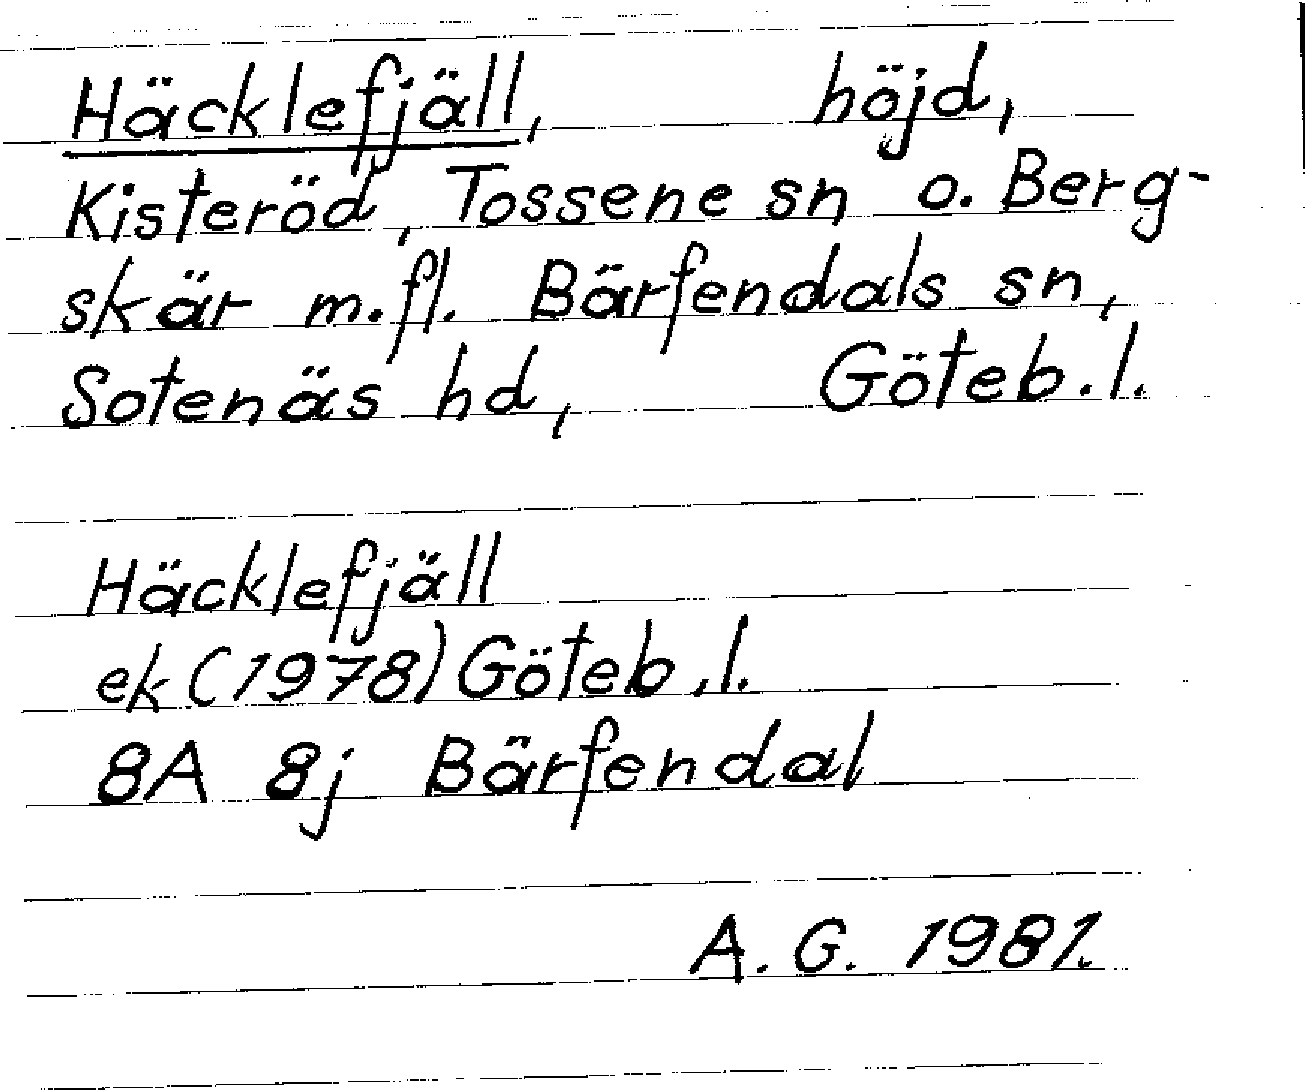 Häcklefjäll, höjd,
Kisteröd, Tossene sn o. Berg-
skär m.fl. Bärfendals sn,
Sotenäs hd, Göteb.l.
Häcklefjäll
ek (1978) Göteb.l.
8A 8j Bärfendal
A.G. 1981.